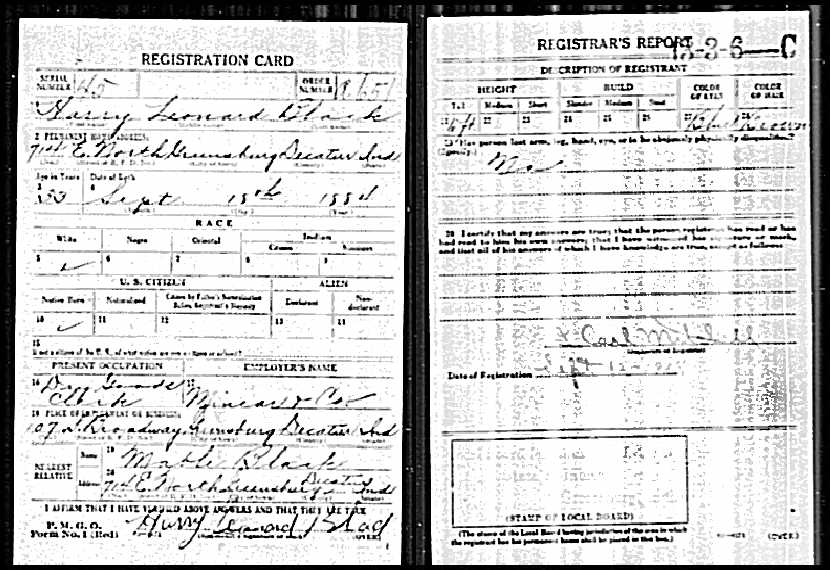 REGISTRATION CARD
SERIAL NUMBER 45 ORDER NUMBER
Harry Leonard Black
2 PERMANENT HOME ADDRESS:
E. North Greensburg Decatur Ind
Age in Years Date of Birth
33 Sept 18th 1884
RACE
White Negro Oriental Indian
Citizen Noncitizen
5 6 7 8 9
U. S. CITIZEN ALIEN
Native Born Naturalized Citizen by Father's Naturalization Before Registrant's Majority Declarant Non-declarant
10 11 12 13 14
15
If not a citizen of the U. S., of what nation are you a citizen or subject?
PRESENT OCCUPATION EMPLOYER'S NAME
16 Dry Goods Clerk 17 & Co
18 PLACE OF EMPLOYMENT OR BUSINESS:
Broadway Greensburg Decatur Ind
NEAREST RELATIVE
Name 19 Black
Address 20 E. North Greensburg Decatur Ind
I AFFIRM THAT I HAVE VERIFIED ABOVE ANSWERS AND THAT THEY ARE TRUE
P. M. G. O.
Form No. 1 (Red) Harry Leonard Black
(OVER)
REGISTRAR'S REPORT
C
DESCRIPTION OF REGISTRANT
HEIGHT BUILD COLOR OF EYES COLOR OF HAIR
Tall Medium Short Slender Medium Stout
21 22 23 24 25 26 27 28
29 Has person lost arm, leg, hand, eye, or is he obviously physically disqualified? (Specify.)
No
30 I certify that my answers are true; that the person registered has read or has had read to him his own answers; that I have witnessed his signature or mark, and that all of his answers of which I have knowledge are true, except as follows:
Date of Registration Sept 12
(STAMP OF LOCAL BOARD)
(The stamp of the Local Board having jurisdiction of the area in which the registrant has his permanent home shall be placed in this box.)
(OVER)